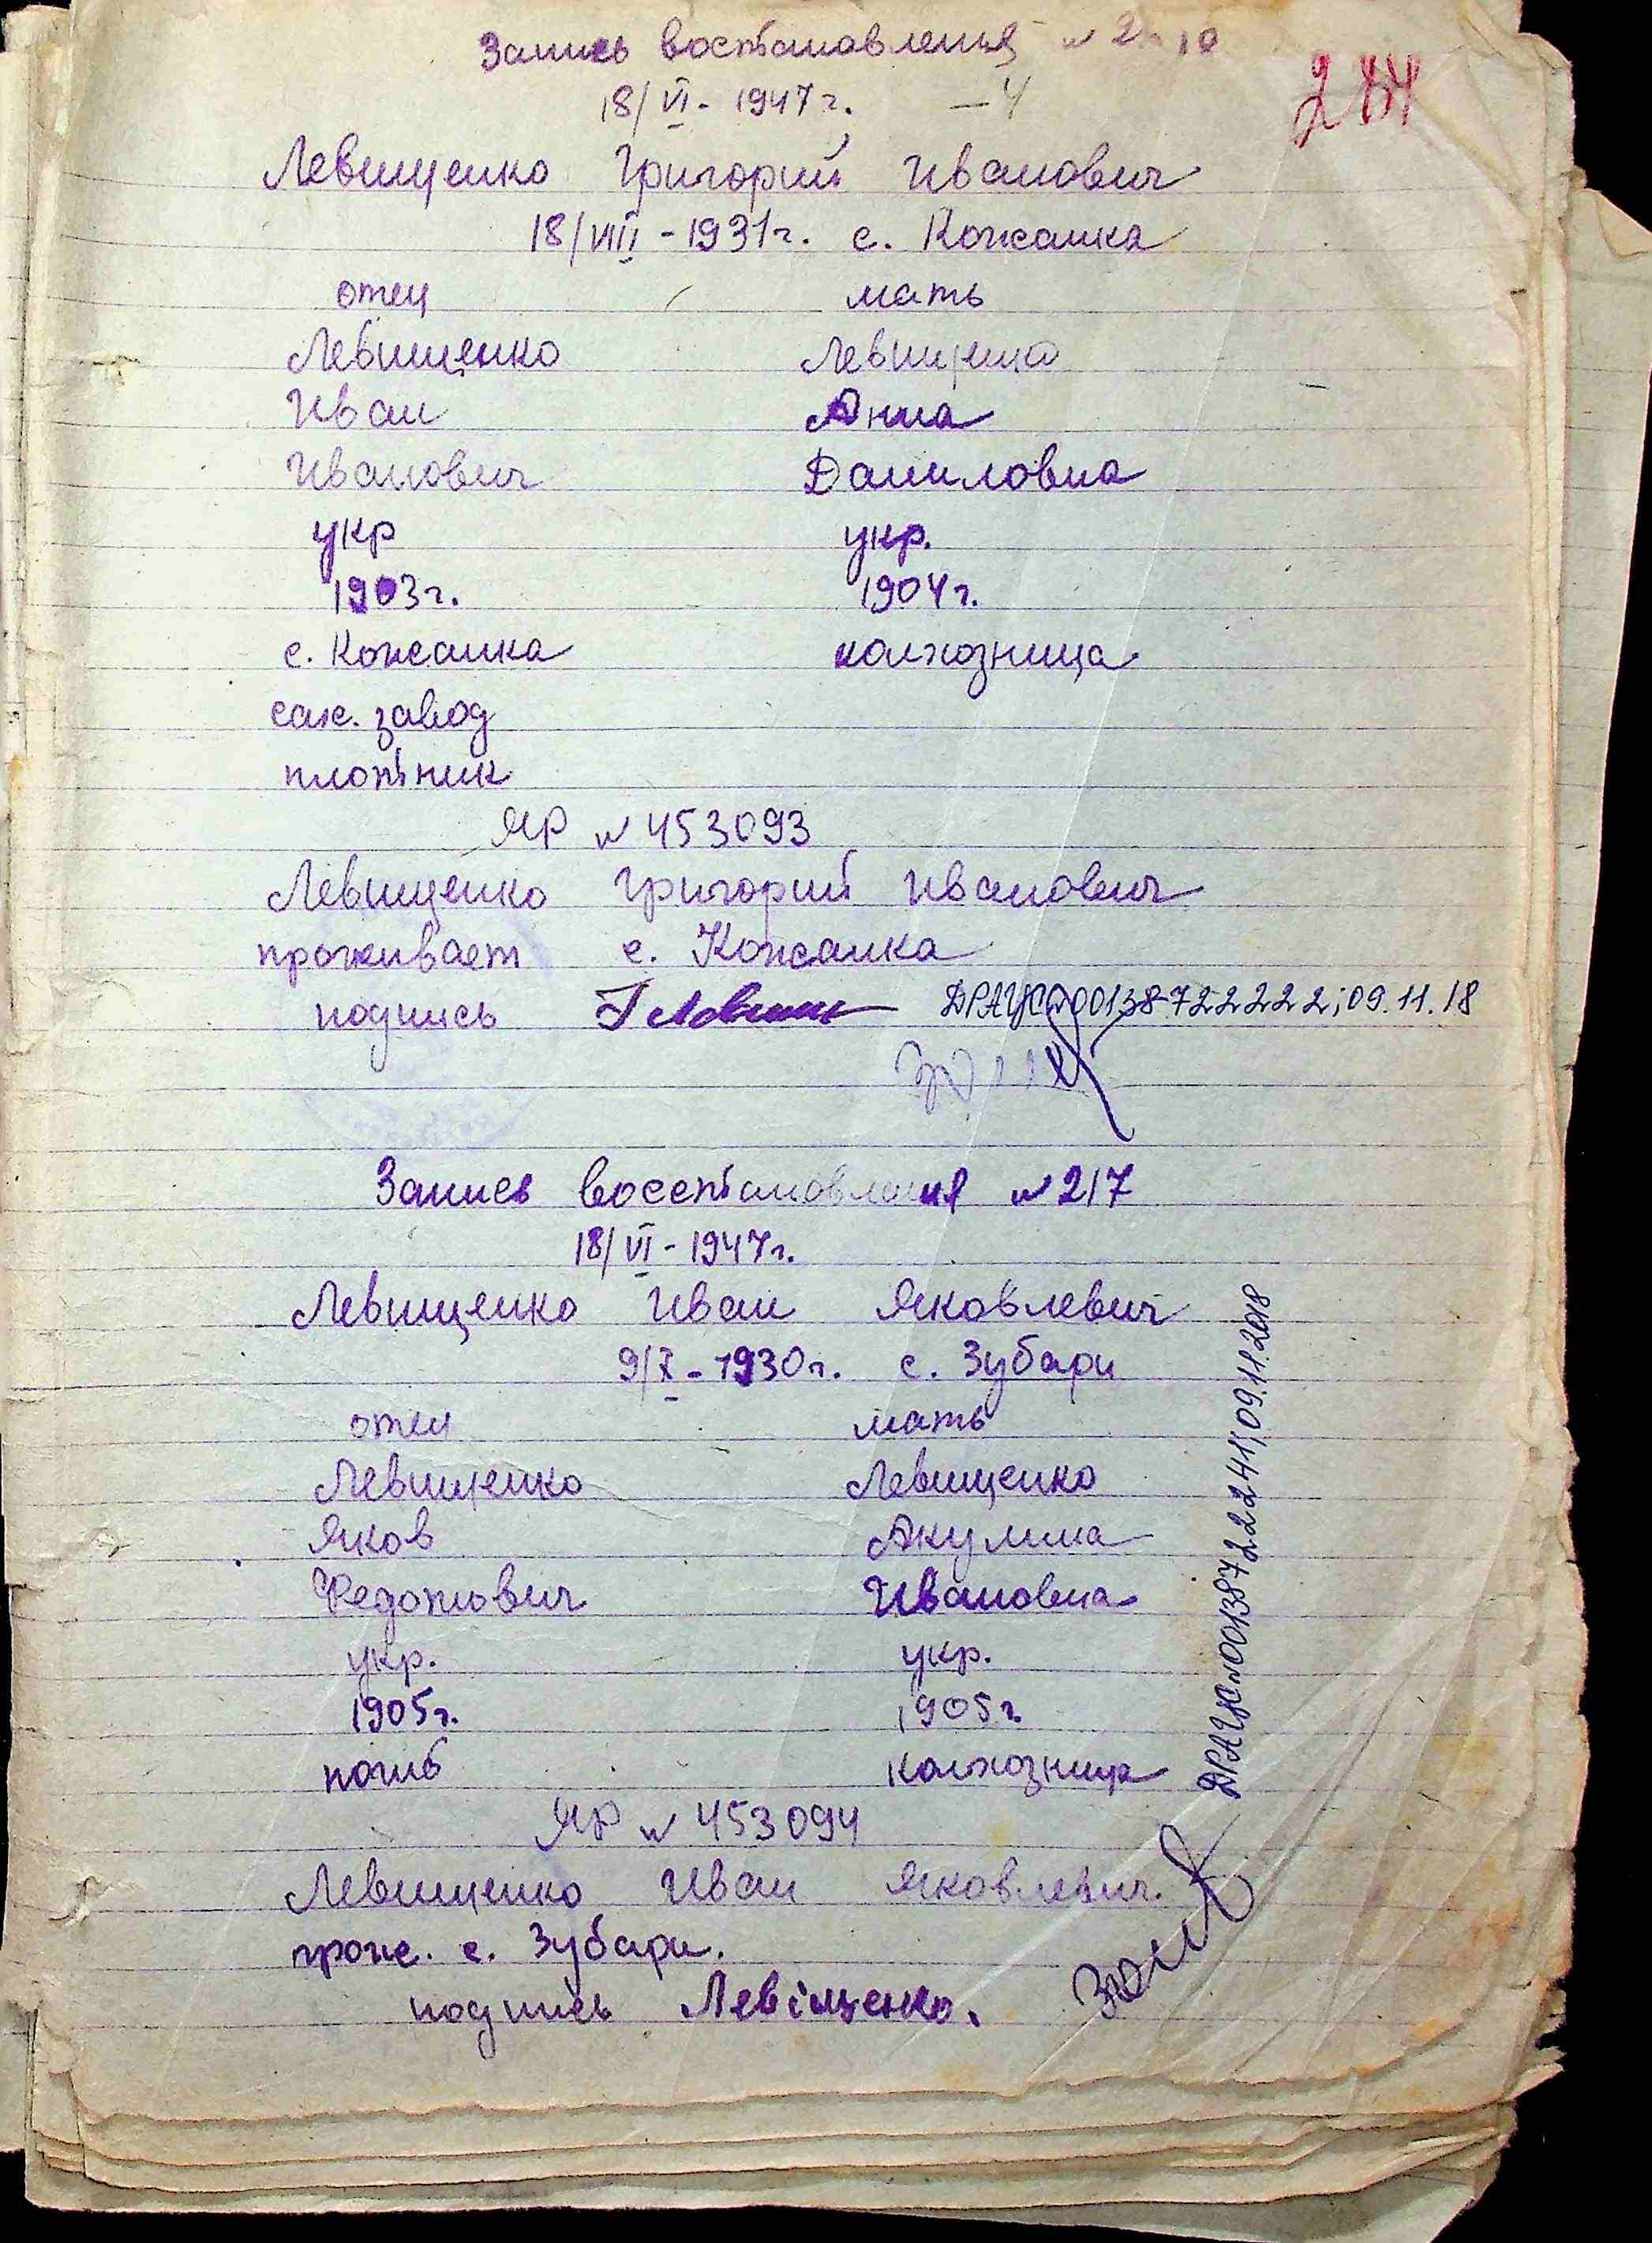 Запись восстановления №
18/VI - 1947 г. - 4
284
Левищенко Григорий Иванович
18/VIII - 1931 г. с. Кожанка
отец мать
Левищенко Левищенко
Иван Анна
Иванович Даниловна
укр укр.
1903 г. 1904 г.
с. Кожанка колхозница
сах. завод
плотник
ЯР № 453093
Левищенко Григорий Иванович
проживает с. Кожанка
подпись ДРАЦС №00138722222; 09.11.18
Запись восстановления № 217
18/VI - 1947 г.
Левищенко Иван Яковлевич
9/X - 1930 г. с. Зубари
отец мать
Левищенко Левищенко
Яков Акулина
Федотович Ивановна
укр. укр.
1905 г. 1905 г.
погиб колхозница
ЯР № 453094
Левищенко Иван Яковлевич.
прож. с. Зубари.
подпись Левіщенко.
ДРАЦС №00138722241; 09.11.2018